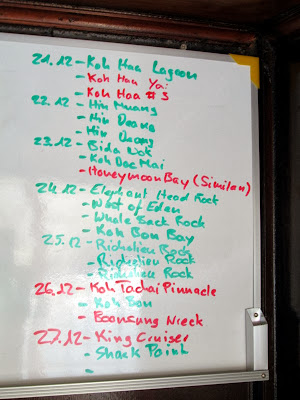 21.12 - Koh Haa Lagoon
- Koh Haa Yai
- Koh Haa # 3
22.12 - Hin Muang
- Hin Deang
- Hin Deang
23.12 - Bida Nok
- Koh Doc Mai
- Honeymoon Bay (Similan)
24.12 - Elephant Head Rock
- West of Eden
- Whale Back Rock
- Koh Bon Bay
25.12 - Richelieu Rock
- Richelieu Rock
- Richelieu Rock
26.12 - Koh Tachai Pinnacle
- Koh Bon
- Boonsung Wreck
27.12 - King Cruiser
- Shark Point
-